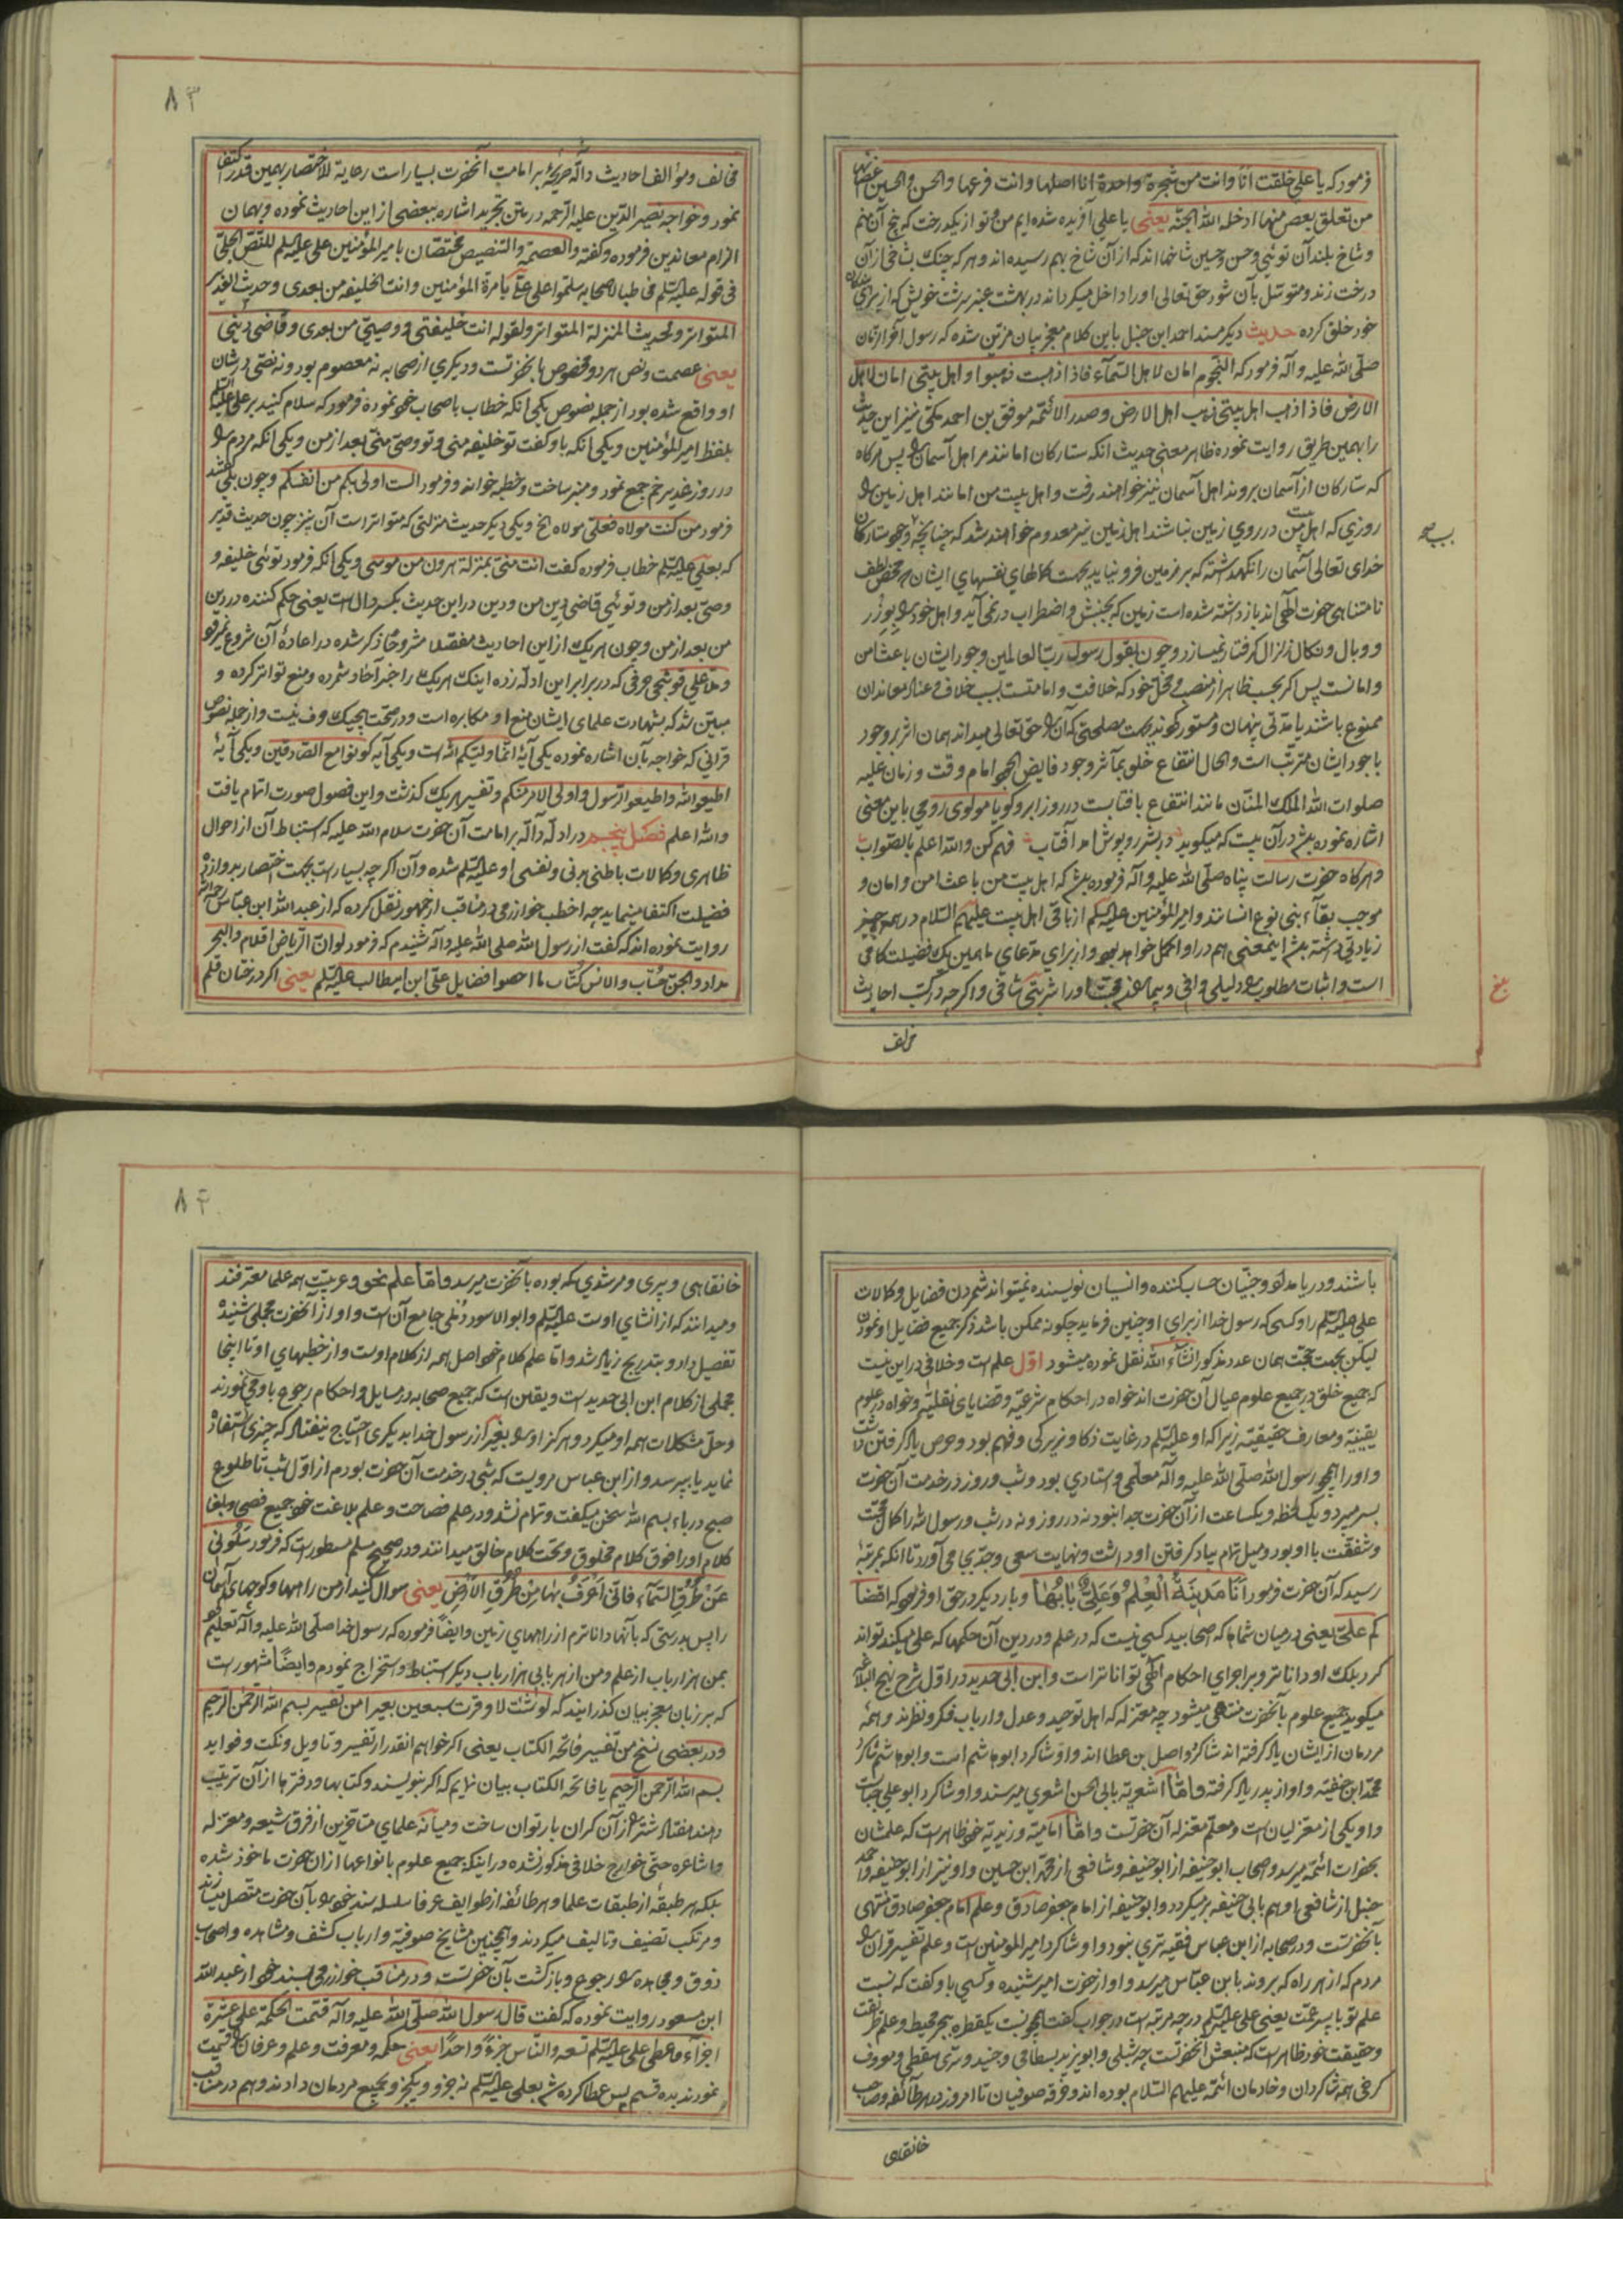 فرمود که یا علی خلقت انا وانت من شجرة واحدة انا اصلها وانت فرعها والحسن والحسین اغصانها
من تعلق بغصن منها ادخله الله الجنة یعنی یا علی آفریده شده‌ایم من و تو از یکدرخت که بیخ آن منم
و شاخ بلند آن توئی و حسن و حسین شاخها اند که از آن شاخ بهم رسیده اند و هر که چنک بشاخی از آن
درخت زند و متوسل بآن شود حق تعالی او را داخل میکرداند در بهشت عنبر سرشت خویش که از برای
خود خلق کرده حدیث دیکر مسند احمد ابن حنبل باین کلام معجز بیان مزین شده که رسول آخر الزمان
صلی الله علیه و آله فرمود که النجوم امان لاهل السمآء فاذا ذهبت ذهبوا و اهل بیتی امان لاهل
الارض فاذا ذهب اهل بیتی ذهب اهل الارض و صدر الائمه موفق بن احمد مکی نیز این حدیث
را بهمین طریق روایت نموده ظاهر معنی حدیث آنکه ستارکان امانند مر اهل آسمان را پس هرکاه
که ستارکان از آسمان بروند اهل آسمان نیز خواهند رفت و اهل بیت من امانند اهل زمین را
روزی که اهل بیت من در روی زمین نباشند اهل زمین نیز معدوم خواهند شد که چنانچه وجود ستارکان
خدای تعالی آسمان را نکهداشته که بر زمین فرو نیاید بجهت کمالهای نفسهای ایشان که محض لطف
نامتناهی حضرت الهی اند باز داشته شده است زمین که بجنبش و اضطراب در نمی آید و اهل خود را بوزر
و وبال و نکال زلزال کرفتار نمیسازد و چون بقول رسول رب العالمین وجود ایشان باعث امن
و امانست پس اکر بحسب ظاهر از منصب و محل خود که خلافت و امامتست بسبب خلاف و عناد معاندان
ممنوع باشند یا مدتی پنهان و مستور کردند بجهت مصلحتی که آن را حق تعالی میداند همان اثر بر وجود
با جود ایشان مترتب است و الحال انتفاع خلق بمآثر وجود فایض الجود امام وقت و زمان علیه
صلوات الله الملک المنان مانند انتفاع بافتابست در روز ابر و کویا مولوی رومی باین معنی
اشاره نموده باشد در آن بیت که میکوید در بشر روپوش آمد آفتاب فهم کن والله اعلم بالصواب
و هرکاه حضرت رسالت پناه صلی الله علیه و آله فرموده باشد که اهل بیت من باعث امن و امان و
موجب بقآء بنی نوع انسانند و امیر المؤمنین علیه السلم از باقی اهل بیت علیهم السلام در همه چیز
زیادتی داشته باشد اینمعنی هم در او اکمل خواهد بود و از برای مدعای ما همین یک فضیلت کافی
است و اثبات مطلوب را دلیلی وافی و بیماران محبت او را شربتی شافی و اکرچه در کتب احادیث
مخالف
۸۳
مخالف و مؤالف احادیث داله صریحه بر امامت آنحضرت بسیار است رعایة للاختصار بهمین قدر اکتفا
نمود و خواجه نصیر الدین علیه الرحمه در متن تجرید اشاره ببعضی از این احادیث نموده و بهمان
الزام معاندین فرموده و کفته والعصمة والتنصیص مختصتان بامیر المؤمنین علی علیه السلم للنص الجلی
فی قوله علیه السلم مخاطبا لاصحابه سلموا علی علی بامرة المؤمنین وانت الخلیفه من بعدی و حدیث الغدیر
المتواتر ولحدیث المنزلة المتواتر ولقوله انت خلیفتی و وصیی من بعدی و قاضی دینی
یعنی عصمت و نص هر دو مخصوص بانحضرتست و دیکری از صحابه نه معصوم بود و نه نصی در شان
او واقع شده بود از جمله نصوص یکی آنکه خطاب باصحاب خود نموده فرمود که سلام کنید بر علی علیه السلم
بلفظ امیر المؤمنین و یکی آنکه باو کفت تو خلیفه منی و تو وصی منی بعد از من و یکی آنکه مردم را
در روز غدیر خم جمع نمود و منبر ساخت و خطبه خوانده فرمود الست اولی بکم من انفسکم و چون بلی کفتند
فرمود من کنت مولاه فعلی مولاه الخ و یکی دیکر حدیث منزلتی که متواتر است آن نیز چون حدیث غدیر
که بعلی علیه السلم خطاب فرموده کفت انت منی بمنزلة هرون من موسی و یکی آنکه فرمود توئی خلیفه و
وصی بعد از من و توئی قاضی دین من و دین در این حدیث بکسر دال است یعنی حکم کننده در دین
من بعد از من و چون هر یک از این احادیث مفصلا مشروحا ذکر شده در اعادۀ آن شروع نمیرود
و ملا علی قوشجی حرفی که در برابر این ادله زده اینک هر یک را خبر آحاد شمرده و منع تواتر کرده و
مبین شد که بشهادت علمای ایشان منع او مکابره است و در صحت هیچیک حرف نیست و از جمله نصوص
قرآنی که خواجه بآن اشاره نموده یکی آیۀ انما ولیکم الله است و یکی آیه کونوا مع الصادقین و یکی آیۀ
اطیعوا الله و اطیعوا الرسول و اولی الامر منکم و تفسیر هر یک کذشت و این فصول صورت اتمام یافت
والله اعلم فصل پنجم در ادلۀ داله بر امامت آن حضرت سلام الله علیه که استنباط آن از احوال
ظاهری و کمالات باطنی بدنی و نفسی او علیه السلم شده و آن اکرچه بسیار است بجهت اختصار بدوازده
فضیلت اکتفا مینماید چه اخطب خوارزمی در مناقب از جمهور نقل کرده که از عبد الله ابن عباس رحمه الله
روایت نموده اند که کفت از رسول الله صلی الله علیه و آله شنیدم که فرمود لو ان الریاض اقلام والبحر
مداد والجن حساب والانس کتاب ما احصوا فضایل علی ابن ابیطالب علیه السلم یعنی اکر درختان قلم
باشند و دریا مداد و جنیان حساب کننده و انسیان نویسنده نمیتوانند شمردن فضایل و کمالات
علی علیه السلم را و کسی که رسول خدا از برای او چنین فرماید چکونه ممکن باشد ذکر جمیع فضایل او نمودن
لیکن بجهت حجت همان عدد مذکور انشاء الله نقل نموده میشود اول علم است و خلافی در این نیست
که جمیع خلق در جمیع علوم عیال آن حضرت اند خواه در احکام شرعیه و قضایای نقلیه و خواه در علوم
یقینیه و معارف حقیقیه زیرا که او علیه السلم در غایت ذکا و زیرکی و فهم بود و حرص یاد کرفتن داشت
و او را همچو رسول الله صلی الله علیه و آله معلمی و استادی بود و شب و روز در خدمت آن حضرت
بسر میبرد و یک لحظه و یکساعت از آن حضرت جدا نبود نه در روز و نه در شب و رسول الله را کمال محبت
و شفقت با او بود و میل تمام بیاد کرفتن او داشت و نهایت سعی و جدی بجا می آورد تا آنکه بمرتبۀ
رسید که آن حضرت فرمود اَنَا مَدینَةُ الْعِلْمِ وَعَلِیٌّ بابُها و بار دیکر در حق او فرمود که اقضا
کم علی یعنی در میان شماها که اصحابید کسی نیست که در علم و در دین آن حکمها که علی میکند تواند
کرد بلکه او داناتر و بر اجرای احکام الهی تواناتر است و ابن ابی الحدید در اول شرح نهج البلاغه
میکوید جمیع علوم بآنحضرت منتهی میشود چه معتزله که اهل توحید و عدل و ارباب فکر و نظرند و همۀ
مردمان از ایشان یاد کرفته اند شاکرد واصل بن عطا اند و او شاکرد ابوهاشم است و ابوهاشم شاکرد
محمد ابن حنفیه و او از پدر یاد کرفته و اما اشعریه بابی الحسن اشعری میرسند و او شاکرد ابو علی جبائی
و او یکی از معتزلیان است و معلم معتزله آن حضرتست و اما امامیه و زیدیه خود ظاهر است که علمشان
بحضرات ائمه میرسد و اصحاب ابوحنیفه از ابوحنیفه و شافعی از محمد ابن حسین و او نیز از ابوحنیفه و احمد
حنبل از شافعی او هم بابی حنیفه بر میکردد و ابوحنیفه از امام جعفر صادق و علم امام جعفر صادق منتهی
بآنحضرتست و در صحابه از ابن عباس فقیه تری نبود و او شاکرد امیر المؤمنین است و علم تفسیر قرآن را
مردم که از هر راه که بروند بابن عباس میرسد و او از حضرت امیر شنیده و کسی باو کفت که نسبت
علم تو با پسر عمت یعنی علی علیه السلم در چه مرتبه است در جواب کفت همچو نسبت یکقطره ببحر محیط و علم طریقت
و حقیقت خود ظاهر است که منبعش آنحضرتست چه شبلی و ابو یزید بسطامی و جنید و سری سقطی و معروف
کرخی همه شاکردان و خادمان ائمه علیهم السلام بوده اند و خرقه صوفیان تا امروز در هر طائفه و صاحب
خانقاهی
۸۴
خانقاهی و پیری و مرشدی که بوده بآنحضرت میرسد و اما علم نحو و عربیت همه علما معترفند
و میدانند که از انشای اوست علیه السلم و ابو الاسود دئلی جامع آن است و او از آنحضرت مجملی شنیده
تفصیل داد و بتدریج زیاد شد و اما علم کلام خود اصل همه از کلام اوست و از خطبهای او تا اینجا
مجملی از کلام ابن ابی حدید است و یقین است که جمیع صحابه در مسایل و احکام رجوع باو می نمودند
و حل مشکلات همه او میکرد و هرکز او را بغیر از رسول خدا بدیکری احتیاج نیفتاد که چیزی استفاده
نماید یا بپرسد و از ابن عباس مرویست که شبی در خدمت آن حضرت بودم از اول شب تا طلوع
صبح در باء بسم الله سخن میکفت و تمام نشد و در علم فصاحت و علم بلاغت خود جمیع فصحا و بلغا
کلام او را فوق کلام مخلوق و تحت کلام خالق میدانند و در صحیح مسلم مسطور است که فرمود سَلُونی
عَنْ طُرُقِ السَّمآءِ فانّی اَعْرَفُ بها مِنْ طُرُقِ الْاَرْضِ یعنی سوال کنید از من راهها و کوچهای آسمان
را پس بدرستی که بآنها داناترم از راههای زمین و ایضاً فرموده که رسول خدا صلی الله علیه و آله تعلیم کرد
بمن هزار باب از علم و من از هر بابی هزار باب دیکر استنباط و استخراج نمودم و ایضاً مشهور است
که بر زبان معجز بیان کذرانیده که لو شئت لاوقرت سبعین بعیرا من تفسیر بسم الله الرحمن الرحیم
و در بعضی نسخ من تفسیر فاتحة الکتاب یعنی اکر خواهم آنقدر از تفسیر و تاویل و نکت و فواید
بسم الله الرحمن الرحیم یا فاتحة الکتاب بیان نمایم که اکر بنویسند و کتابها و دفترها از آن ترتیب
دهند هفتاد شتر را از آن کران بار توان ساخت و میانۀ علمای متاخرین از فرق شیعه و معتزله
و اشاعره حتی خوارج خلافی مذکور نشده در اینکه جمیع علوم بانواعها از ان حضرت ماخوذ شده
بلکه هر طبقه از طبقات علما و هر طائفه از طوایف عرفا سلسله سند خود را بآن حضرت متصل میسازند
و مرتکب تصنیف و تالیف میکردند و همچنین مشایخ صوفیه و ارباب کشف و مشاهده و اصحاب
ذوق و مجاهده را رجوع و بازکشت بآن حضرتست و در مناقب خوارزمی بسند خود از عبد الله
ابن مسعود روایت نموده که کفت قال رسول الله صلی الله علیه و آله قسمت الحکمة علی عشرة
اجزآء فاعطی علی علیه السلم تسعه والناس جزءً واحداً یعنی حکمه و معرفت و علم و عرفان را قسمت
نمودند بده قسم پس عطا کرده شد بعلی علیه السلم نه جزو و یکجزو بجمیع مردمان دادند و هم در مناقب